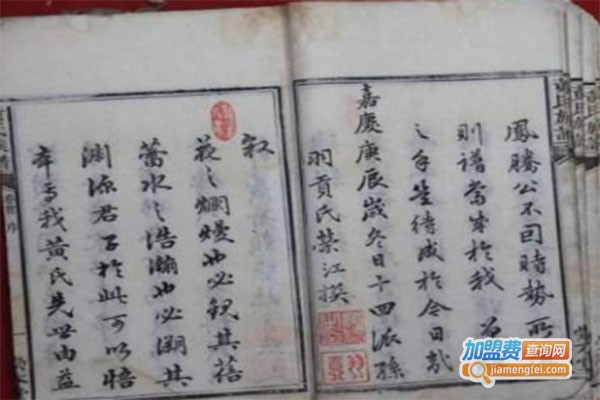 鳳騰公不囿時勢所
則譜當成於我
之手豈待成於今日哉
嘉慶庚辰歲冬日十四派孫
羽貢氏榮江撰
敘
花之爛熳也必視其蓓
蕾水之浩瀚也必溯其
淵源君子於此可以悟
我黃氏先世由益
卷首 序
加盟费查询网
jiamengfei.com